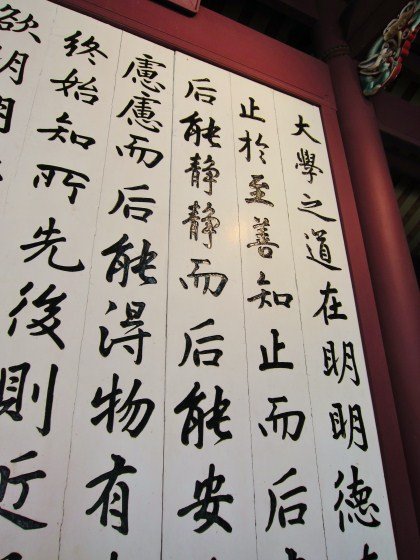 大學之道在明明德
止於至善知止而后
后能靜靜而后能安
慮慮而后能得物有
終始知所先後則近
欲明明